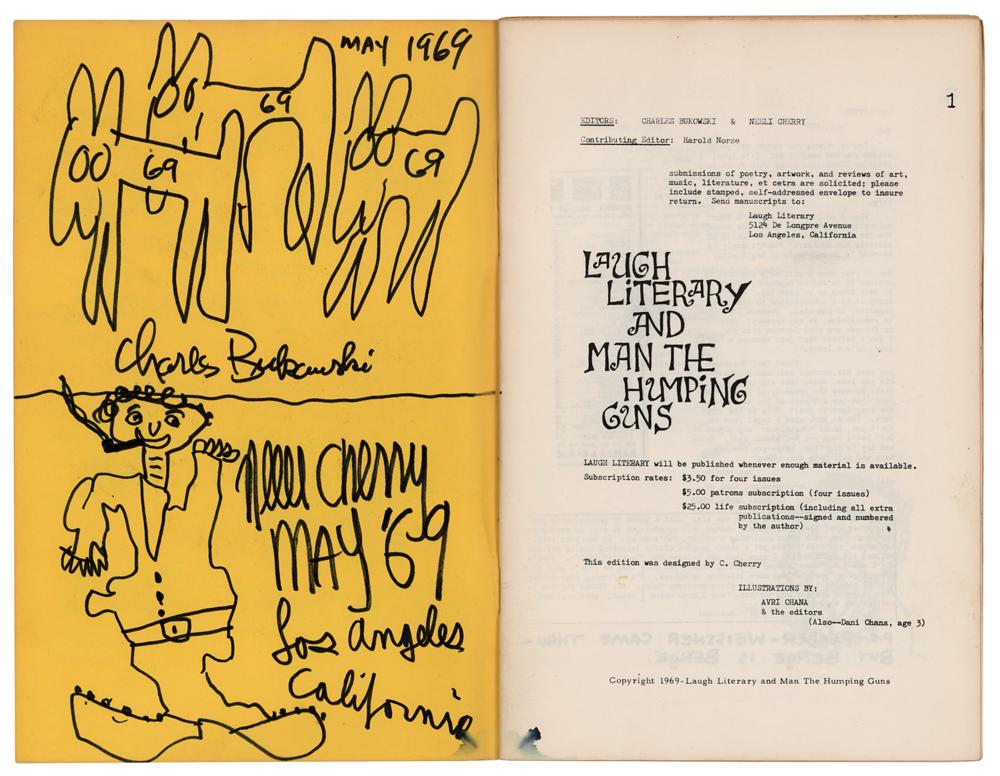 MAY 1969
69
69
69
Charles Bukowski
Neeli Cherry
MAY '69
Los Angeles
California
1
EDITORS: CHARLES BUKOWSKI & NEELI CHERRY
Contributing Editor: Harold Norse
submissions of poetry, artwork, and reviews of art,
music, literature, et cetra are solicited; please
include stamped, self-addressed envelope to insure
return. Send manuscripts to:
Laugh Literary
5124 De Longpre Avenue
Los Angeles, California
LAUGH
LITERARY
AND
MAN THE
HUMPING
GUNS
LAUGH LITERARY will be published whenever enough material is available.
Subscription rates: $3.50 for four issues
$5.00 patrons subscription (four issues)
$25.00 life subscription (including all extra
publications--signed and numbered
by the author)
This edition was designed by C. Cherry
ILLUSTRATIONS BY:
AVRI OHANA
& the editors
(Also--Dani Ohana, age 3)
Copyright 1969-Laugh Literary and Man The Humping Guns